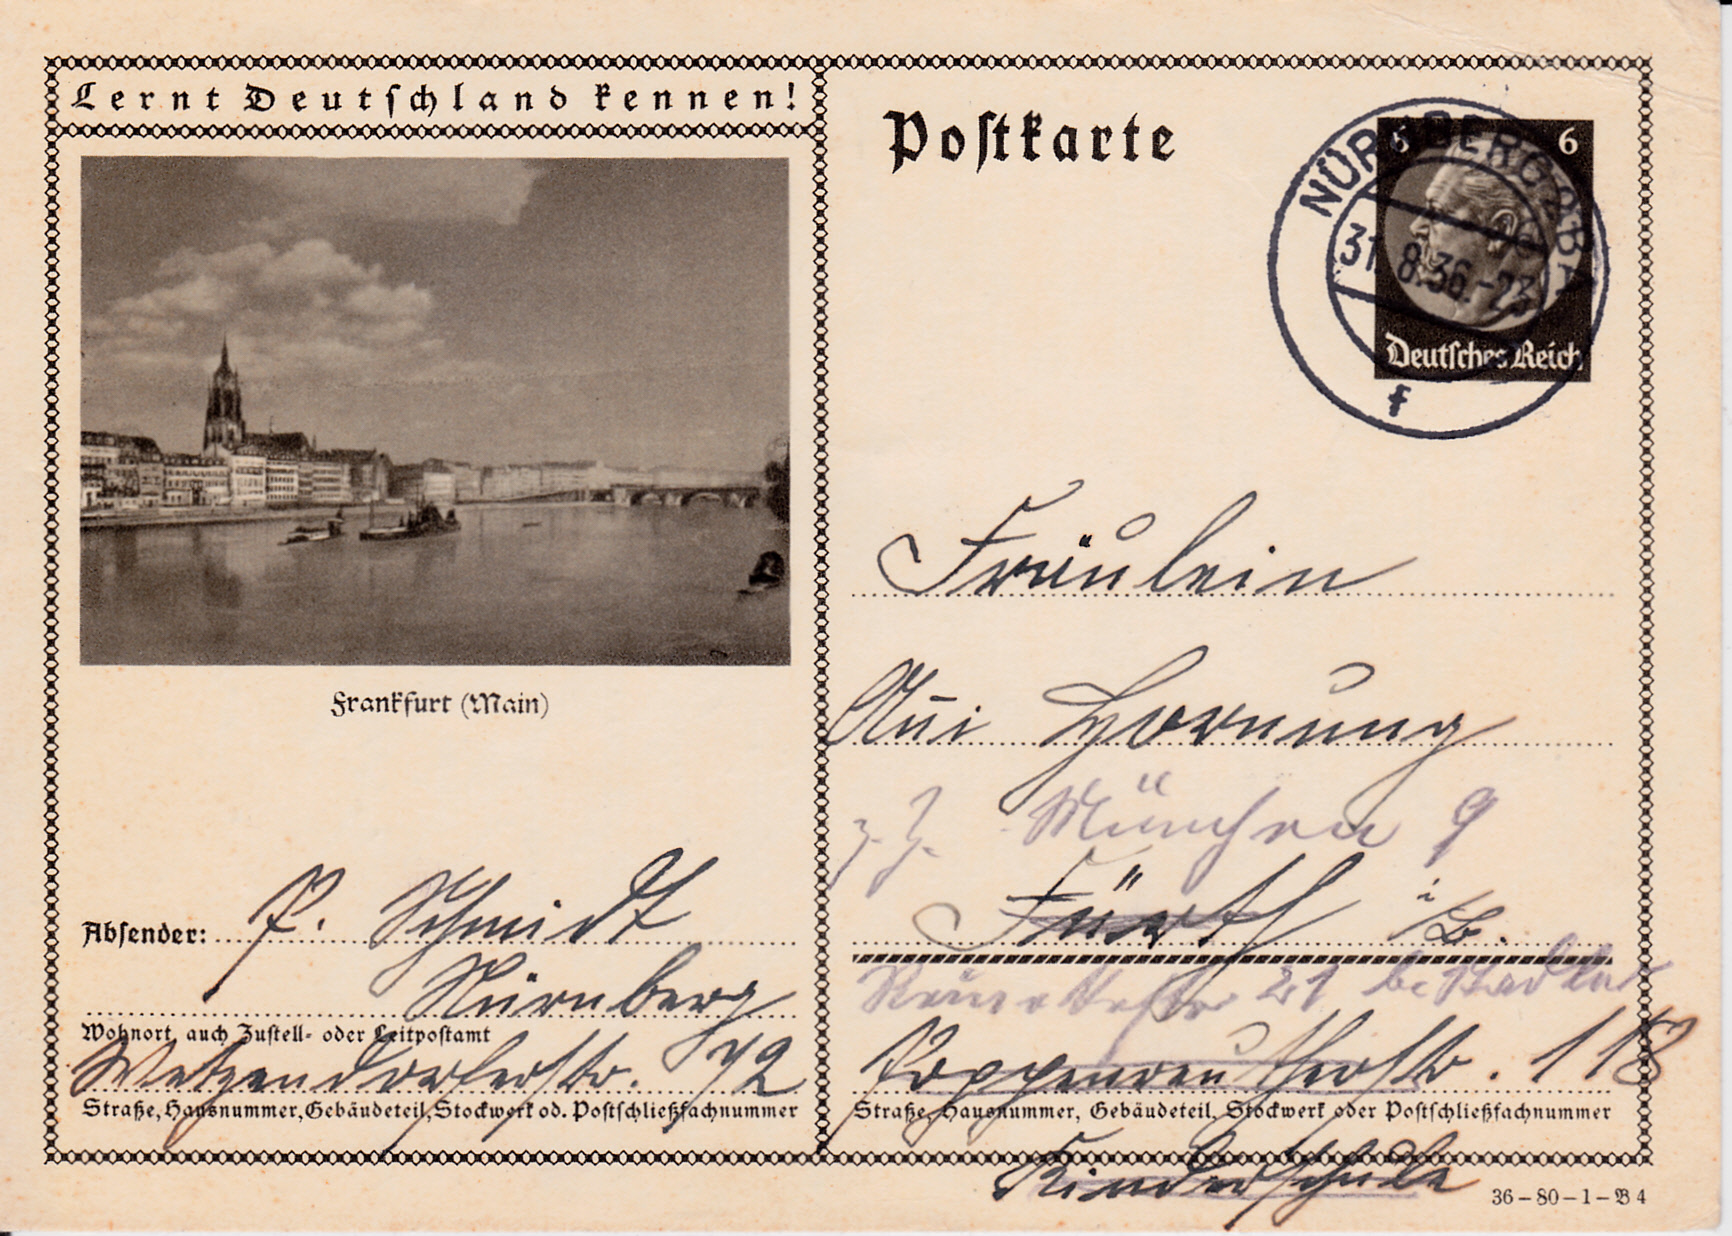 Lernt Deutschland kennen!
Frankfurt (Main)
Absender: P. Schmidt
Nürnberg
Wohnort, auch Zustell- oder Leitpostamt
Wetzendorferstr.
Straße, Hausnummer, Gebäudeteil, Stockwerk od. Postschließfachnummer
Postkarte
6 6
Deutsches Reich
NÜRNBERG 2 BA
31.8.36.-23
f
Fräulein
Hornung
z. Z. München 9
Fürth i/B.
21 b.
Poppenreutherstr. 118
Straße, Hausnummer, Gebäudeteil, Stockwerk oder Postschließfachnummer
Kinderschule
36-80-1-B4